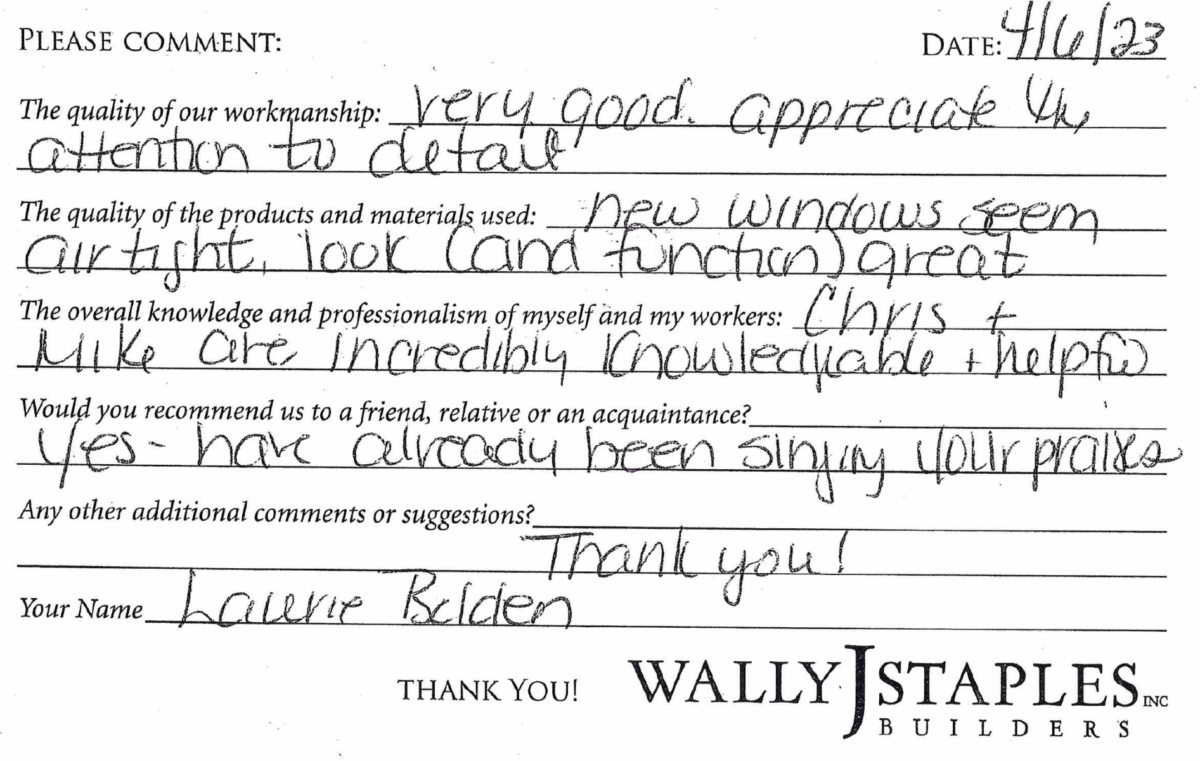 PLEASE COMMENT: DATE: 4/6/23
The quality of our workmanship: very good. appreciate the
attention to detail
The quality of the products and materials used: new windows seem
air tight, look (and function) great
The overall knowledge and professionalism of myself and my workers: Chris +
Mike are incredibly knowledgable + helpful
Would you recommend us to a friend, relative or an acquaintance?
Yes - have already been singing your praises
Any other additional comments or suggestions?
Thank you!
Your Name Laurie Belden
THANK YOU! WALLY J STAPLES INC
BUILDERS